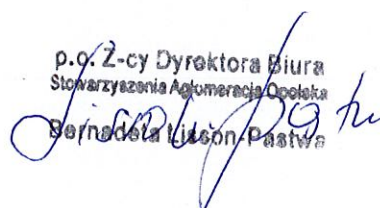 p.o. Z-cy Dyrektora Biura
Stowarzyszenia Aglomeracja Opolska
Bernadeta Lisson-Pastwa